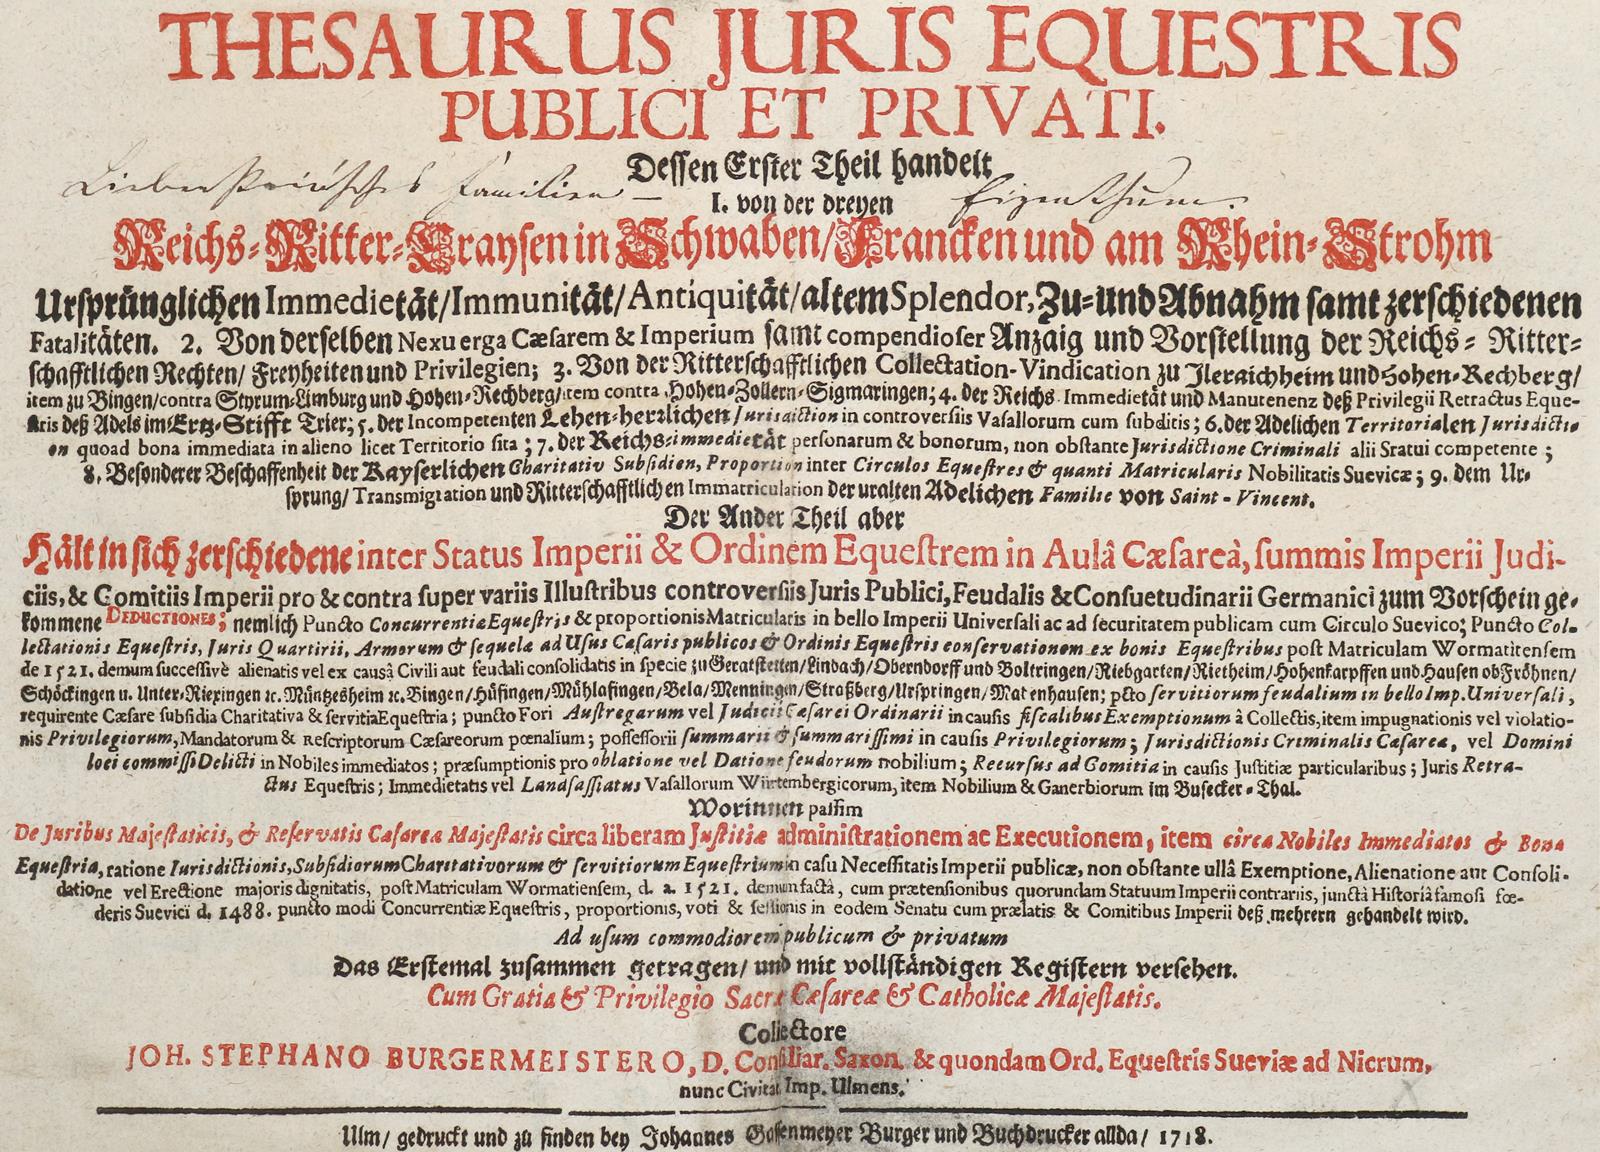 THESAURUS JURIS EQUESTRIS
PUBLICI ET PRIVATI.
Dessen Erster Theil handelt
Liebensteinisches Familien – Eigenthum.
I. von der dreyen
Reichs-Ritter-Craysen in Schwaben/Francken und am Rhein-Strohm
Ursprünglichen Immedietät/Immunität/Antiquität/altem Splendor, Zu- und Abnahm samt zerschiedenen
Fatalitäten. 2. Von derselben Nexu erga Cæsarem & Imperium samt compendioser Anzaig und Vorstellung der Reichs- Ritter-
schafftlichen Rechten/ Freyheiten und Privilegien; 3. Von der Ritterschafftlichen Collectation-Vindication zu Jleraichheim und Hohen-Rechberg/
item zu Bingen/contra Styrum-Limburg und Hohen-Rechberg/item contra Hohen-Zollern-Sigmaringen; 4. der Reichs-Immedietät und Manutenenz deß Privilegii Retractus Eque-
stris deß Adels im Ertz-Stifft Trier; 5. der Incompetenten Lehen-herrlichen Jurisdiction in controversiis Vasallorum cum subditis; 6. der Adelichen Territorialen Jurisdicti-
on quoad bona immediata in alieno licet Territorio sita; 7. der Reichs-immedietät personarum & bonorum, non obstante Jurisdictione Criminali alii Statui competente;
8. Besonderer Beschaffenheit der Kayserlichen Charitativ Subsidien, Proportion inter Circulos Equestres & quanti Matricularis Nobilitatis Suevicæ; 9. dem Ur-
sprung/ Transmigration und Ritterschafftlichen Immatriculation der uralten Adelichen Familie von Saint-Vincent.
Der Ander Theil aber
Hält in sich zerschiedene inter Status Imperii & Ordinem Equestrem in Aulâ Cæsareà, summis Imperii Judi-
ciis, & Comitiis Imperii pro & contra super variis Illustribus controversiis Juris Publici, Feudalis & Consuetudinarii Germanici zum Vorschein ge-
kommene DEDUCTIONES; nemlich Puncto Concurrentiæ Equestris & proportionis Matricularis in bello Imperii Universali ac ad securitatem publicam cum Circulo Suevico; Puncto Col-
lectationis Equestris, Juris Quartirii, Armorum & sequelæ ad Usus Cæsaris publicos & Ordinis Equestris conservationem ex bonis Equestribus post Matriculam Wormatiensem
de 1521. demum successivè alienatis vel ex causâ Civili aut feudali consolidatis in specie zu Geratstetten/Lindach/Oberndorff und Boltringen/Riebgarten/Rietheim/Hohenkarpffen und Hausen ob Fröhnen/
Schöckingen u. Unter-Riexingen ꝛc. Müntzesheim ꝛc. Bingen/Hüfingen/Mühlafingen/Bela/Menningen/Straßberg/Urspringen/Mattenhausen; pcto servitiorum feudalium in bello Imp. Universali,
requirente Cæsare subsidia Charitativa & servitia Equestria; puncto Fori Austregarum vel Judicii Cæsarei Ordinarii in causis fiscalibus Exemptionum à Collectis, item impugnationis vel violatio-
nis Privilegiorum, Mandatorum & Rescriptorum Cæsareorum pœnalium; possessorii summarii & summarissimi in causis Privilegiorum; Jurisdictionis Criminalis Cæsareæ, vel Domini
loci commissi Delicti in Nobiles immediatos; præsumptionis pro oblatione vel Datione feudorum nobilium; Recursus ad Comitia in causis Justitiæ particularibus; Juris Retra-
ctus Equestris; Immedietatis vel Landsassiatus Vasallorum Würtembergicorum, item Nobilium & Ganerbiorum im Busecker-Thal.
Worinnen passim
De Juribus Majestaticis, & Reservatis Cæsareæ Majestatis circa liberam Justitiæ administrationem ac Executionem, item circa Nobiles Immediatos & Bona
Equestria, ratione Jurisdictionis, Subsidiorum Charitativorum & servitiorum Equestrium in casu Necessitatis Imperii publicæ, non obstante ullâ Exemptione, Alienatione aut Consoli-
datione vel Erectione majoris dignitatis, post Matriculam Wormatiensem, d. a. 1521. demum factâ, cum prætensionibus quorundam Statuum Imperii contrariis, junctâ Historiâ famosi fœ-
deris Suevici d. 1488. puncto modi Concurrentiæ Equestris, proportionis, voti & sessionis in eodem Senatu cum prælatis & Comitibus Imperii deß mehrern gehandelt wird.
Ad usum commodiorem publicum & privatum
Das Erstemal zusammen getragen/ und mit vollständigen Registern versehen.
Cum Gratia & Privilegio Sacræ Cæsareæ & Catholicæ Majestatis.
Collectore
JOH. STEPHANO BURGERMEISTERO, D. Consiliar. Saxon. & quondam Ord. Equestris Sueviæ ad Nicrum,
nunc Civitat. Imp. Ulmens.
Ulm/ gedruckt und zu finden bey Johannes Gassenmeyer Burger und Buchdrucker allda/ 1718.